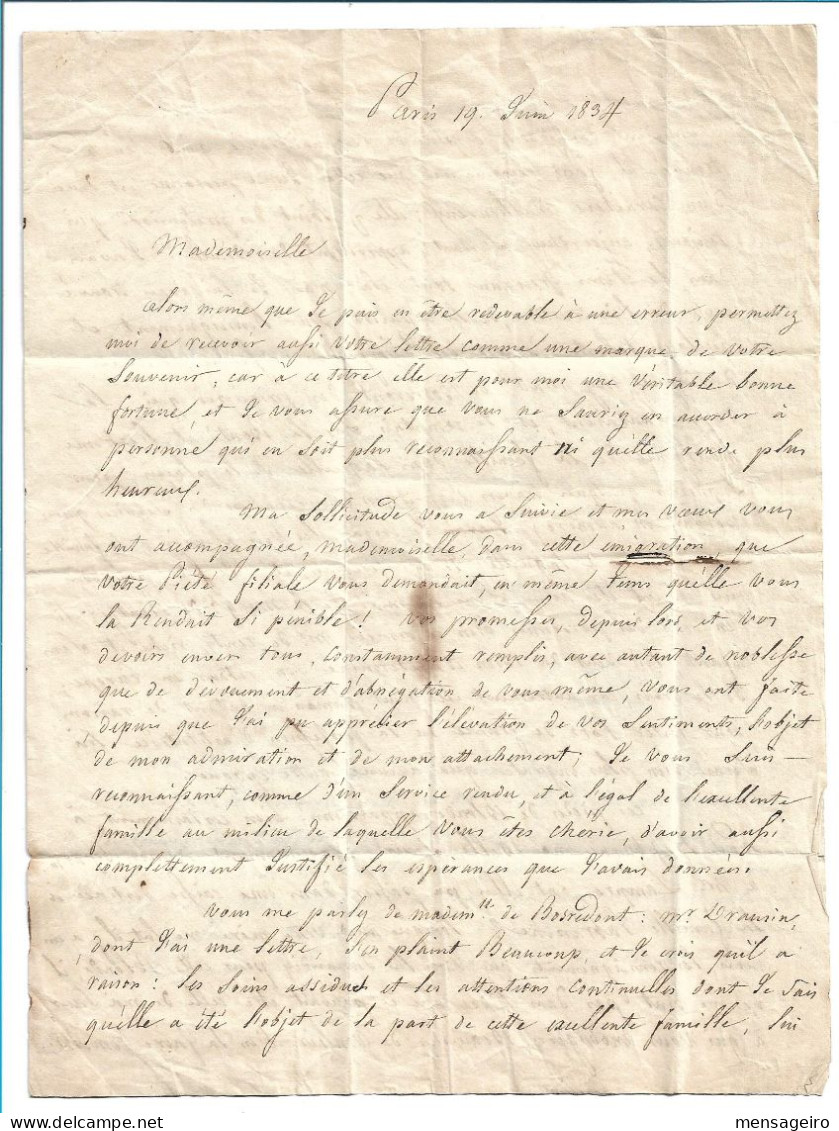 Paris 19. Juin 1834
Mademoiselle
alors même que Je puis en être redevable à une erreur, permettez
moi de recevoir aussi votre lettre comme une marque de votre
souvenir, car à ce titre elle est pour moi une véritable bonne
fortune, et Je vous assure que vous ne Sauriez en accorder à
personne qui en soit plus reconnaissant ni qu'elle rende plus
heureux.
Ma Sollicitude vous a Suivie et mes vœux vous
ont accompagnée, mademoiselle, dans cette émigration, que
votre Piété filiale vous demandait, en même tems qu'elle vous
la Rendait Si pénible! vos promesses, depuis lors, et vos
devoirs envers tous, constamment remplis, avec autant de noblesse
que de dévouement et d'abnégation de vous même, vous ont faite
, depuis que J'ai pu apprécier l'élévation de vos Sentiments, l'objet
de mon admiration et de mon attachement; Je vous Suis
reconnaissant, comme d'un Service rendu, et à l'égal de l'excellente
famille au milieu de laquelle vous êtes chérie, d'avoir aussi
complettement Justifié les espérances que J'avais données.
Vous me parlez de madem.lle de Bosredont: mr. Drausin,
, dont J'ai une lettre, s'en plaint Beaucoup, et Je crois qu'il a
raison: les Soins assidus et les attentions continuelles dont Je Sais
qu'elle a été l'objet de la part de cette excellente famille, lui
mensageiro